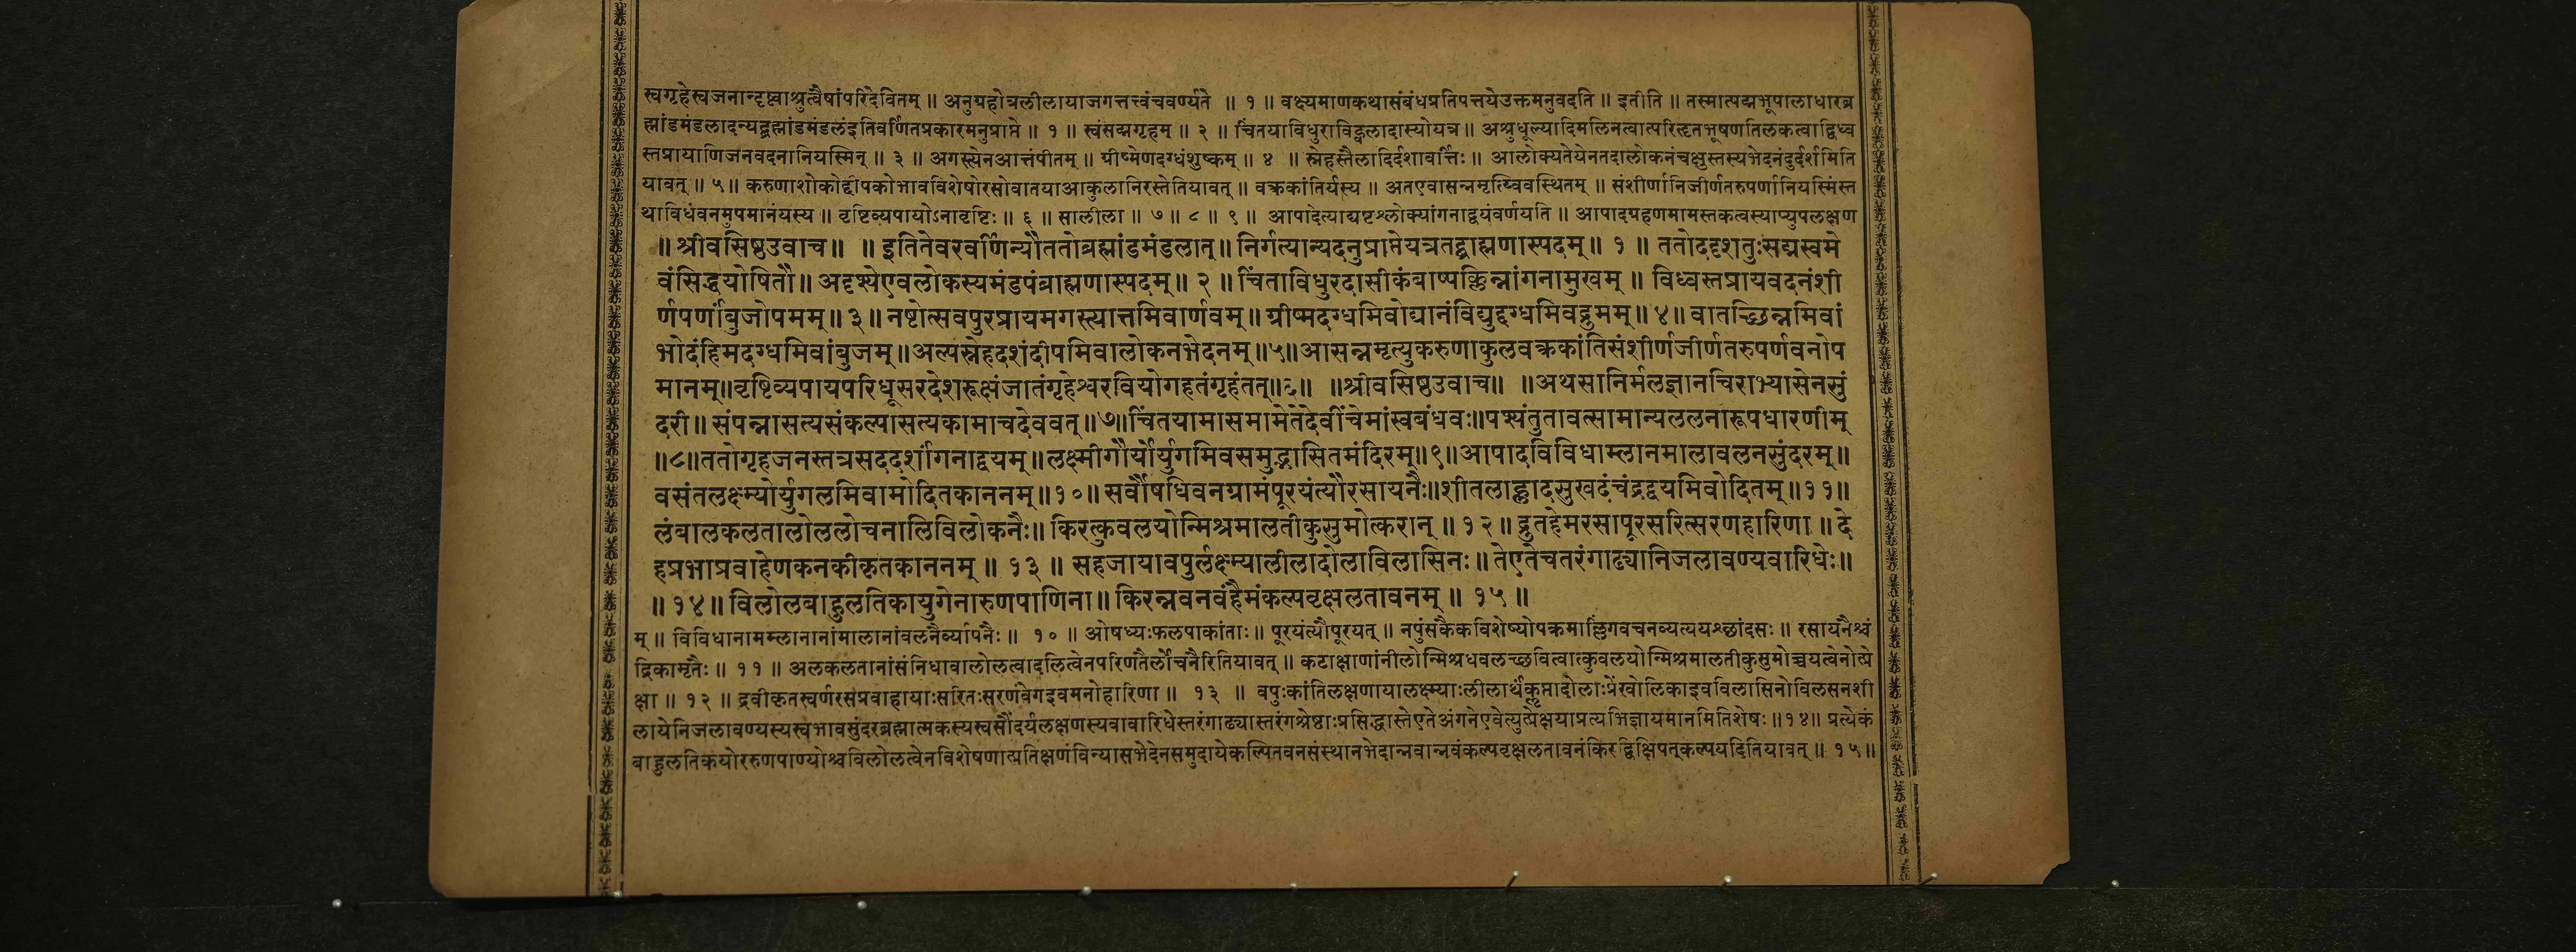 स्वगृहेस्वजनान्दृष्ट्वाश्रुत्वैषांपरिदेवितम् ॥ अनुग्रहोत्रलीलायाजगत्तत्त्वंचवर्ण्यते ॥ १ ॥ वक्ष्यमाणकथासंबंधप्रतिपत्तयेउक्तमनुवदति ॥ इतीति ॥ तस्मात्पद्मभूपालाधारब्र
ह्मांडमंडलादन्यद्ब्रह्मांडमंडलंइतिवर्णितप्रकारमनुप्राप्ते ॥ १ ॥ स्वंसद्मगृहम् ॥ २ ॥ चिंतयाविधुराविह्वलादास्योयत्र ॥ अश्रुधूल्यादिमलिनत्वात्परिलृतभूषणतिलकत्वाद्विध्व
स्तप्रायाणिजनवदनानियस्मिन् ॥ ३ ॥ अगस्त्येनआत्तंपीतम् ॥ ग्रीष्मेणदग्धंशुष्कम् ॥ ४ ॥ स्नेहस्तैलादिर्दशावर्त्तिः ॥ आलोक्यतेयेनतदालोकनंचक्षुस्तस्यभेदनंदुर्दर्शमिति
यावत् ॥ ५ ॥ करुणाशोकोद्दीपकोभावविशेषोरसोवातयाआकुलानिरस्तेतियावत् ॥ वक्रकांतिर्यस्य ॥ अतएवासन्नमृत्य्विवस्थितम् ॥ संशीर्णानिजीर्णतरुपर्णानियस्मिंस्त
थाविधंवनमुपमानंयस्य ॥ वृष्टिव्यपायोऽनावृष्टिः ॥ ६ ॥ सालीला ॥ ७ ॥ ८ ॥ ९ ॥ आपादेत्याद्यष्टश्लोक्यांगनाद्वयंवर्णयति ॥ आपादग्रहणमामस्तकत्वस्याप्युपलक्षण
॥ श्रीवसिष्ठउवाच ॥ ॥ इतितेवरवर्णिन्यौततोब्रह्मांडमंडलात् ॥ निर्गत्यान्यदनुप्राप्तेयत्रतद्ब्राह्मणास्पदम् ॥ १ ॥ ततोददृशतुःसद्मस्वमे
वंसिद्धयोषितौ ॥ अदृश्येएवलोकस्यमंडपंब्राह्मणास्पदम् ॥ २ ॥ चिंताविधुरदासीकंबाष्पक्लिन्नांगनामुखम् ॥ विध्वस्तप्रायवदनंशी
र्णपर्णांबुजोपमम् ॥ ३ ॥ नष्टोत्सवपुरप्रायमगस्त्यात्तमिवार्णवम् ॥ ग्रीष्मदग्धमिवोद्यानंविद्युद्दग्धमिवद्रुमम् ॥ ४ ॥ वातच्छिन्नमिवां
भोदंहिमदग्धमिवांबुजम् ॥ अल्पस्नेहदशंदीपमिवालोकनभेदनम् ॥ ५ ॥ आसन्नमृत्युकरुणाकुलवक्रकांतिसंशीर्णजीर्णतरुपर्णवनोप
मानम् ॥ वृष्टिव्यपायपरिधूसरदेशरूक्षंजातंगृहेश्वरवियोगहतंगृहंतत् ॥ ६ ॥ ॥ श्रीवसिष्ठउवाच ॥ ॥ अथसानिर्मलज्ञानचिराभ्यासेनसुं
दरी ॥ संपन्नासत्यसंकल्पासत्यकामाचदेववत् ॥ ७ ॥ चिंतयामासमामेतेदेवींचेमांस्वबंधवः ॥ पश्यंतुतावत्सामान्यललनारूपधारणीम्
॥ ८ ॥ ततोगृहजनस्तत्रसददर्शांगनाद्वयम् ॥ लक्ष्मीगौर्योर्युगमिवसमुद्भासितमंदिरम् ॥ ९ ॥ आपादविविधाम्लानमालावलनसुंदरम् ॥
वसंतलक्ष्म्योर्युगलमिवामोदितकाननम् ॥ १० ॥ सर्वौषधिवनग्रामंपूरयंत्यौरसायनैः ॥ शीतलाह्लादसुखदंचंद्रद्वयमिवोदितम् ॥ ११ ॥
लंबालकलतालोललोचनालिविलोकनैः ॥ किरत्कुवलयोन्मिश्रमालतीकुसुमोत्करान् ॥ १२ ॥ द्रुतहेमरसापूरसरित्सरणहारिणा ॥ दे
हप्रभाप्रवाहेणकनकीकृतकाननम् ॥ १३ ॥ सहजायावपुर्लक्ष्म्यालीलादोलाविलासिनः ॥ तेएतेचतरंगाढ्यानिजलावण्यवारिधेः ॥
॥ १४ ॥ विलोलबाहुलतिकायुगेनारुणपाणिना ॥ किरन्नवनवंहैमंकल्पवृक्षलतावनम् ॥ १५ ॥
म् ॥ विविधानामम्लानानांमालानांवलनैर्व्यापनैः ॥ १० ॥ ओषध्यःफलपाकांताः ॥ पूरयंत्यौपूरयत् ॥ नपुंसकैकविशेष्योपक्रमाल्लिंगवचनव्यत्ययश्छांदसः ॥ रसायनैश्चं
द्रिकामृतैः ॥ ११ ॥ अलकलतानांसंनिधावालोलत्वादलित्वेनपरिणतैर्लोचनैरितियावत् ॥ कटाक्षाणांनीलोन्मिश्रधवलच्छवित्वात्कुवलयोन्मिश्रमालतीकुसुमोच्चयत्वेनोत्प्रे
क्षा ॥ १२ ॥ द्रवीकृतस्वर्णरसप्रवाहायाःसरितःसरणंवेगइवमनोहारिणा ॥ १३ ॥ वपुःकांतिलक्षणायालक्ष्म्याःलीलार्थंकॢप्तादोलाःप्रेंखोलिकाइवविलासिनोविलसनशी
लायेनिजलावण्यस्यस्वभावसुंदरब्रह्मात्मकस्यस्वसौंदर्यलक्षणस्यवावारिधेस्तरंगाढ्यास्तरंगश्रेष्ठाःप्रसिद्धास्तेएतेअंगनेएवेत्युत्प्रेक्षयाप्रत्यभिज्ञायमानमितिशेषः ॥ १४ ॥ प्रत्येकं
बाहुलतिकयोररुणपाण्योश्चविलोलत्वेनविशेषणात्प्रतिक्षणंविन्यासभेदेनसमुदायेकल्पितवनसंस्थानभेदान्नवान्नवंकल्पवृक्षलतावनंकिरद्विक्षिपत्कल्पयदितियावत् ॥ १५ ॥